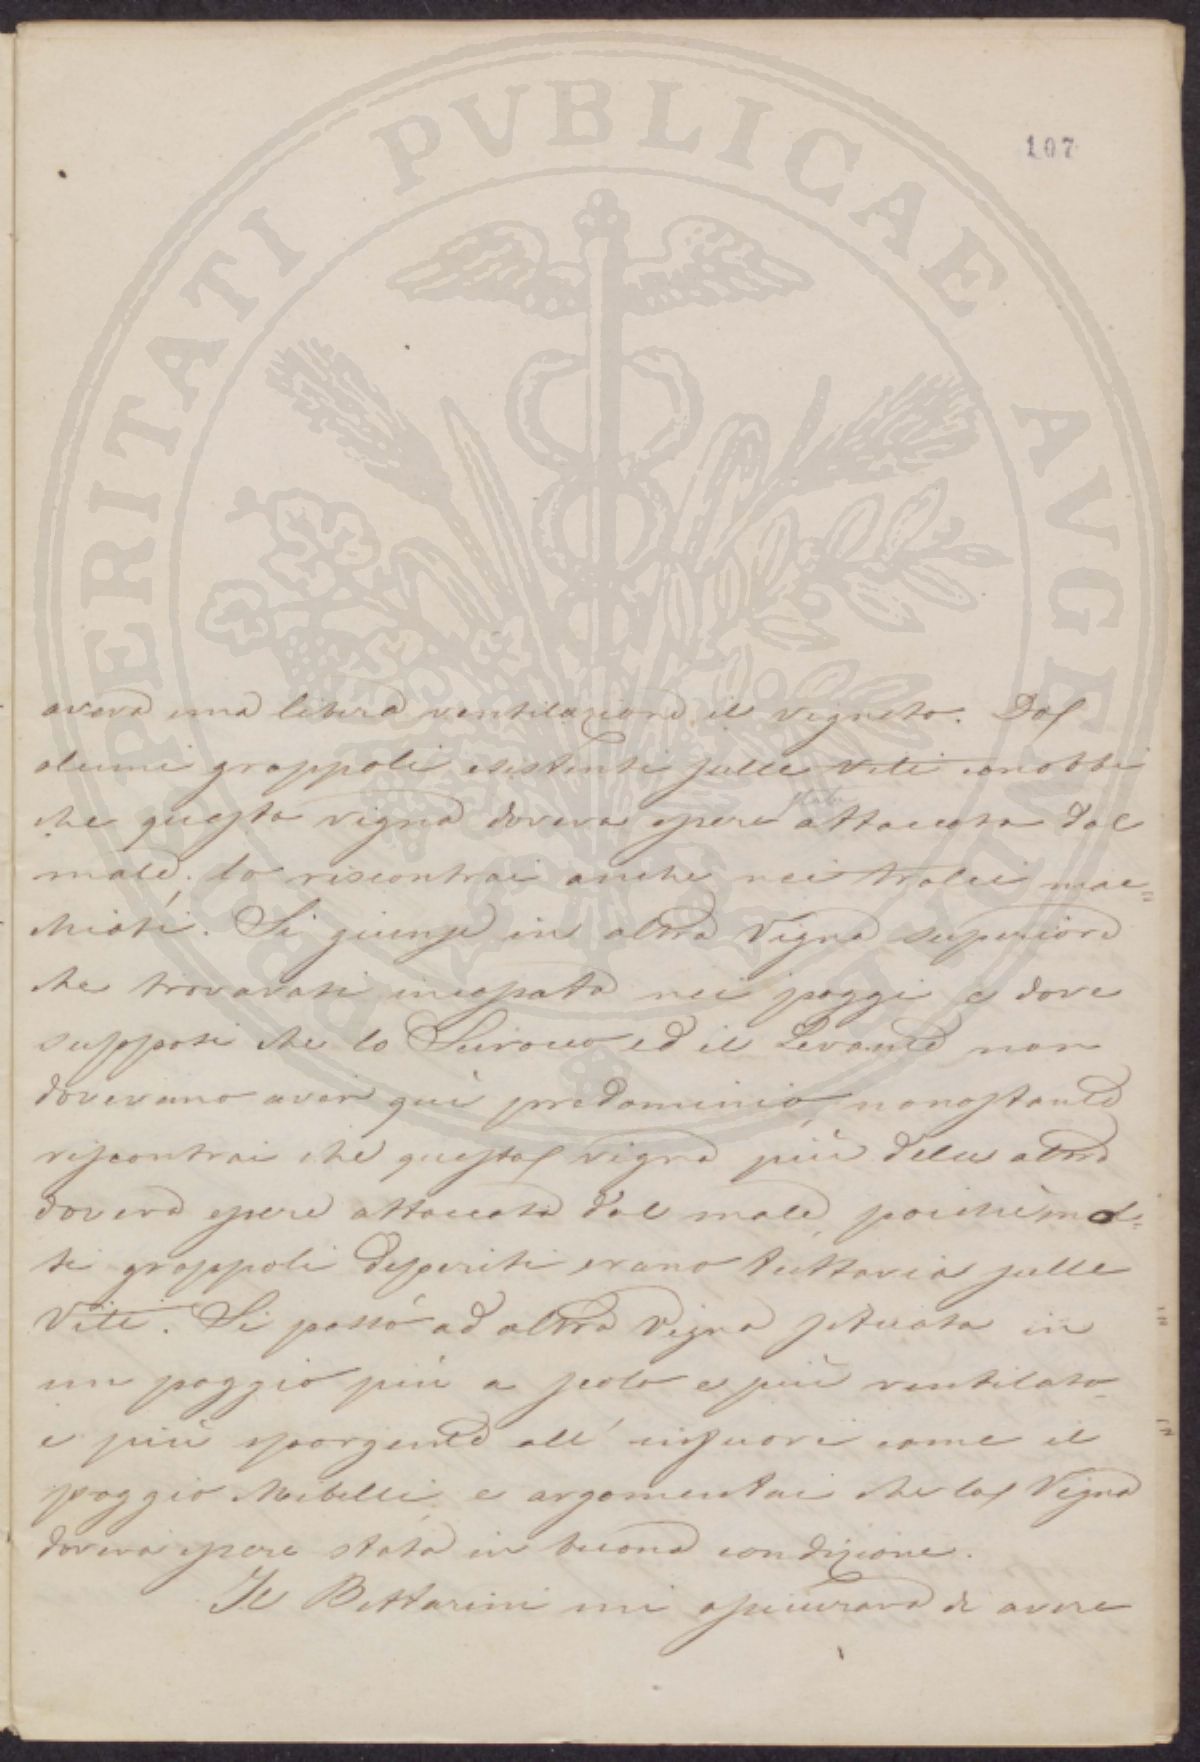 107
PROSPERITATI PVBLICAE AVGENDAE
aveva una libera ventilazione il vigneto. Da
alcuni grappoli esistenti sulle viti conobbi
che questa vigna doveva essere stata attaccata dal
male; lo riscontrai anche nei tralci mac=
chiati. Si giunse in altra Vigna superiore
che trovavasi incassata nei poggi e dove
supposi che lo Scirocco ed il Levante non
dovevano aver quì predominio, nonostante
riscontrai che questa vigna più della altra
doveva essere attaccata dal male, poichè mol=
ti grappoli deperiti erano tuttavia sulle
Viti. Si passò ad altra Vigna situata in
un poggio più a solo e più ventilato
e più sporgente all' infuori come il
poggio Mibelli e argomentai che la Vigna
doveva essere stata in buona condizione.
Il Bettarini mi assicurava di avere